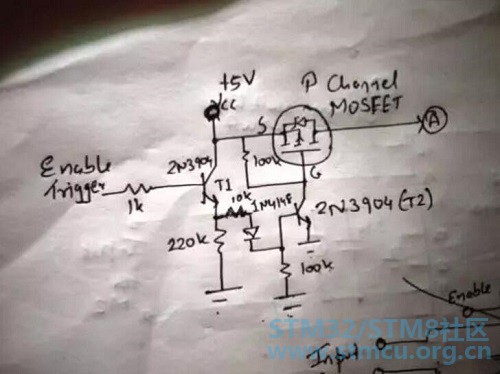 +5V
P Channel
MOSFET
Vcc
S
A
Enable
Trigger
2N3904
T1
100k
G
1k
10k
1N4148
2N3904(T2)
220k
100k
Enable
Input
STM32/STM8社区
www.stmcu.org.cn